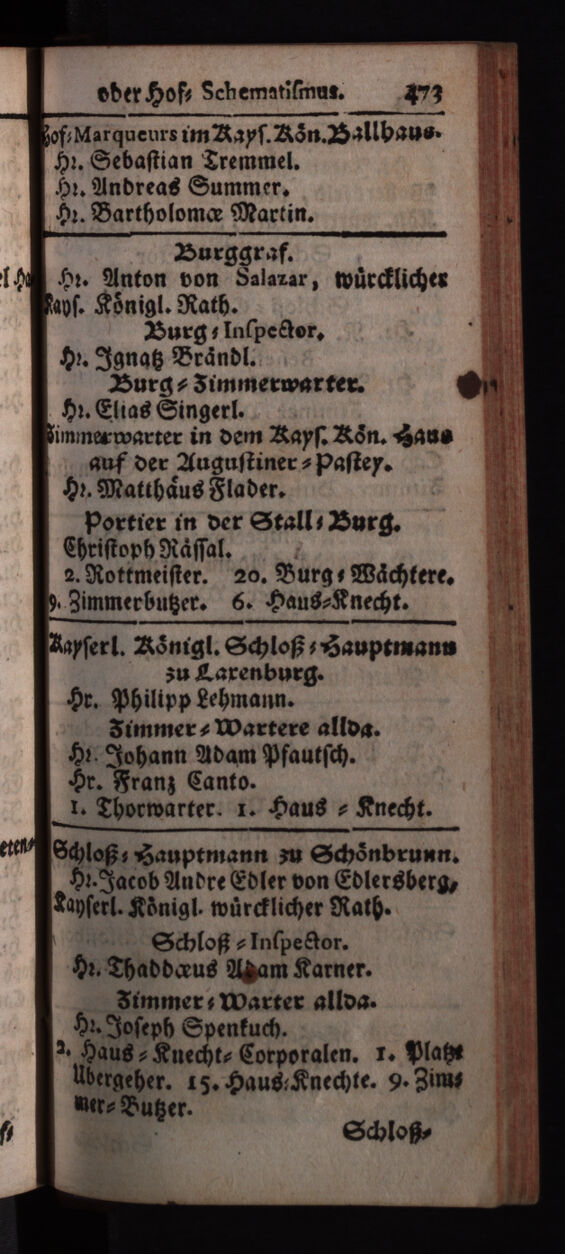 oder Hof⸗ Schematismus. 473
Hof⸗Marqueurs im Kays. Kön. Ballhaus.
Hr. Sebastian Tremmel.
Hr. Andreas Summer.
Hr. Bartholomæ Martin.
Burggraf.
Hr. Anton von Salazar, würcklicher
Kays. Königl. Rath.
Burg⸗Inspector.
Hr. Ignatz Brändl.
Burg⸗Zimmerwarter.
Hr. Elias Singerl.
Zimmerwarter in dem Kays. Kön. Haus
auf der Augustiner⸗Pastey.
Hr. Matthäus Flader.
Portier in der Stall⸗Burg.
Christoph Rässal.
2. Rottmeister. 20. Burg⸗Wächtere.
9. Zimmerbutzer. 6. Haus⸗Knecht.
Kayserl. Königl. Schloß⸗Hauptmann
zu Laxenburg.
Hr. Philipp Lehmann.
Zimmer⸗Wartere allda.
Hr. Johann Adam Pfautsch.
Hr. Franz Canto.
1. Thorwarter. 1. Haus⸗Knecht.
Schloß⸗Hauptmann zu Schönbrunn.
Hr. Jacob Andre Edler von Edlersberg,
Kayserl. Königl. würcklicher Rath.
Schloß⸗Inspector.
Hr. Thaddæus Adam Karner.
Zimmer⸗Warter allda.
Hr. Joseph Spenkuch.
2. Haus⸗Knecht⸗Corporalen. 1. Platz⸗
Ubergeher. 15. Haus⸗Knechte. 9. Zim⸗
mer⸗Butzer.
Schloß⸗